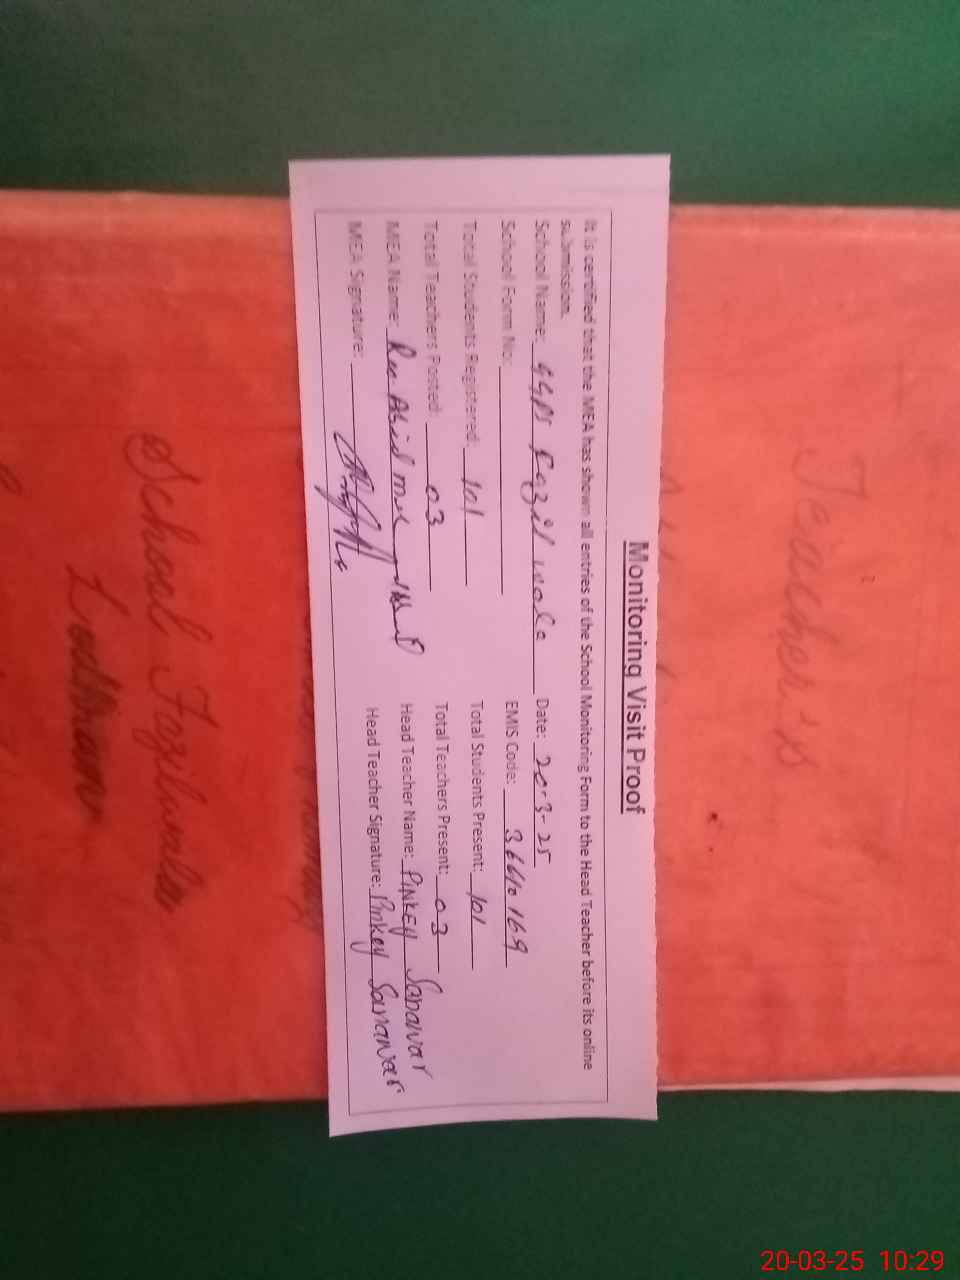 Monitoring Visit Proof
It is certified that the MEA has shown all entries of the School Monitoring Form to the Head Teacher before its online
submission.
School Name: GGPS Fazil wala Date: 20-3-25
School Form No: EMIS Code: 36610169
Total Students Registered: 101 Total Students Present: 101
Total Teachers Posted: 03 Total Teachers Present: 03
MEA Name: Abid Head Teacher Name: PINKEY Sanawar
MEA Signature: Head Teacher Signature: Pinkey Sanawar
Teacher's
School Fazilwala
Lodhran
20-03-25 10:29